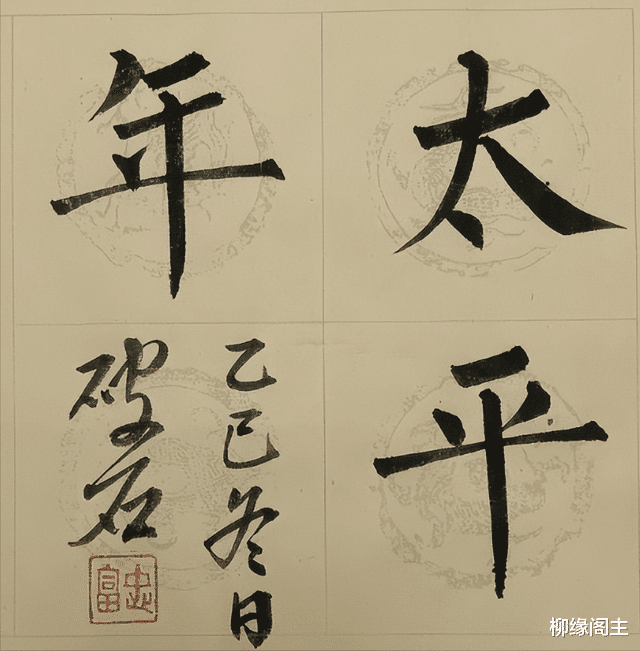 太平
年
乙巳冬日
破石
忠富
柳缘阁主